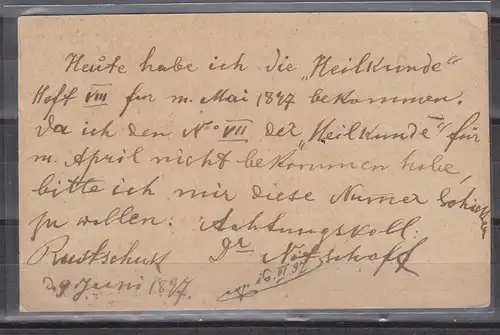 Heute habe ich die „Heilkunde“
Heft VIII fur m. Mai 1897 bekommen.
Da ich den No VII der „Heilkunde“ für
m. April nicht bekommen habe,
bitte ich mir diese Numer Schicken
zu wollen. Achtungsvoll:
Rustschuk Dr
D. 9 Juni 1897. 16.VI 97